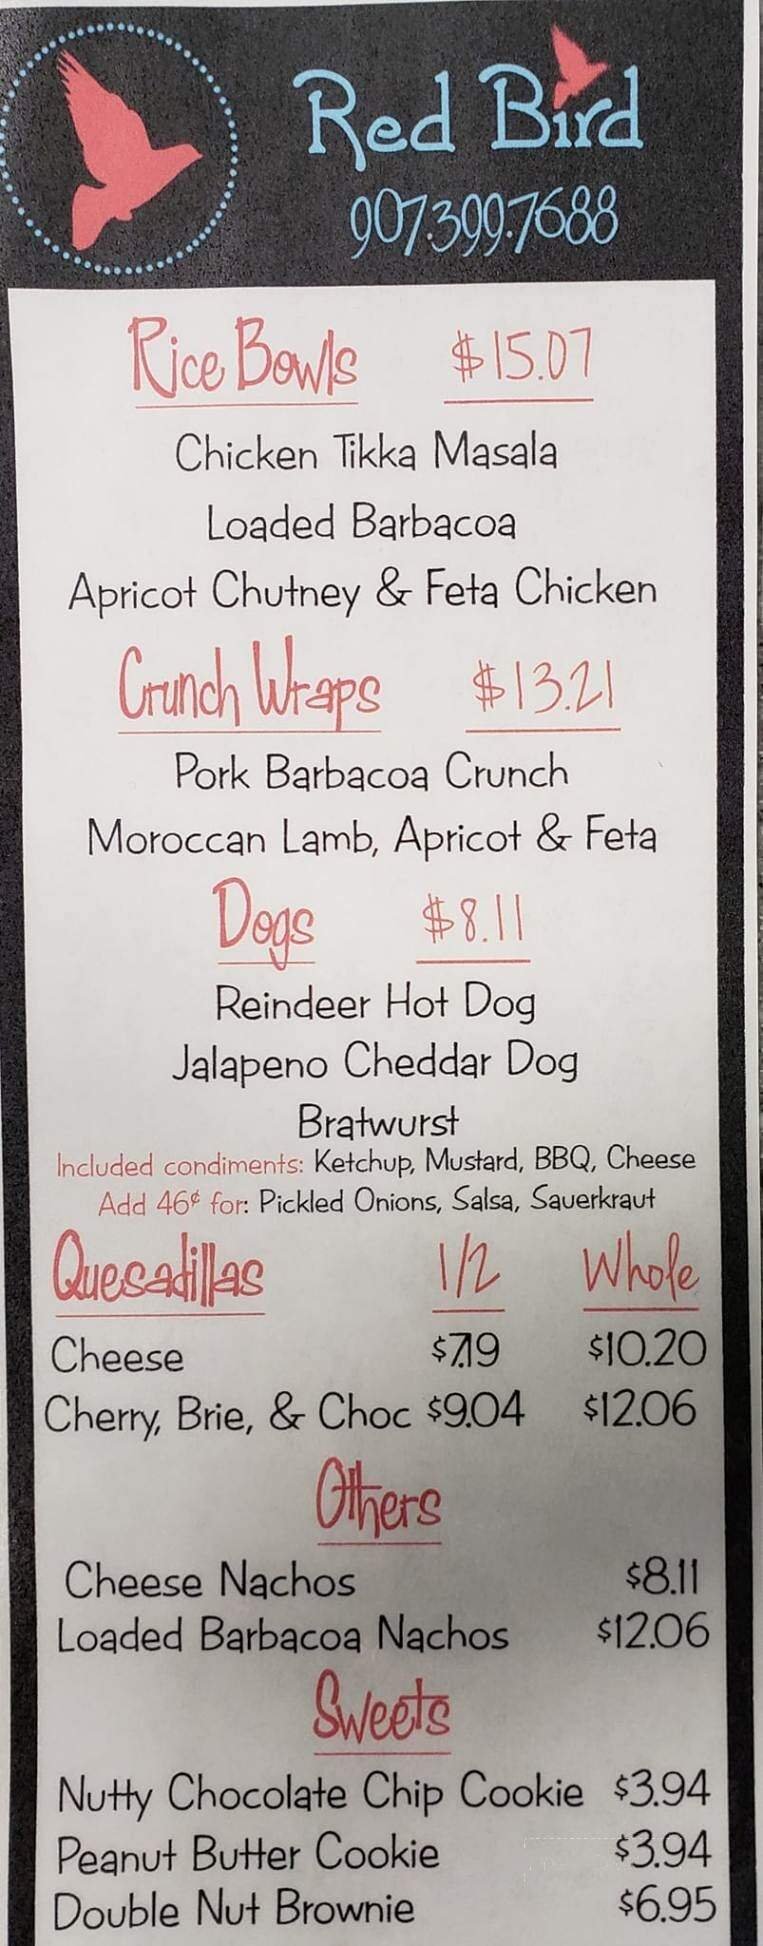 Red Bird
907.399.7688
Rice Bowls $15.07
Chicken Tikka Masala
Loaded Barbacoa
Apricot Chutney & Feta Chicken
Crunch Wraps $13.21
Pork Barbacoa Crunch
Moroccan Lamb, Apricot & Feta
Dogs $8.11
Reindeer Hot Dog
Jalapeno Cheddar Dog
Bratwurst
Included condiments: Ketchup, Mustard, BBQ, Cheese
Add 46¢ for: Pickled Onions, Salsa, Sauerkraut
Quesadillas 1/2 Whole
Cheese $7.19 $10.20
Cherry, Brie, & Choc $9.04 $12.06
Others
Cheese Nachos $8.11
Loaded Barbacoa Nachos $12.06
Sweets
Nutty Chocolate Chip Cookie $3.94
Peanut Butter Cookie $3.94
Double Nut Brownie $6.95